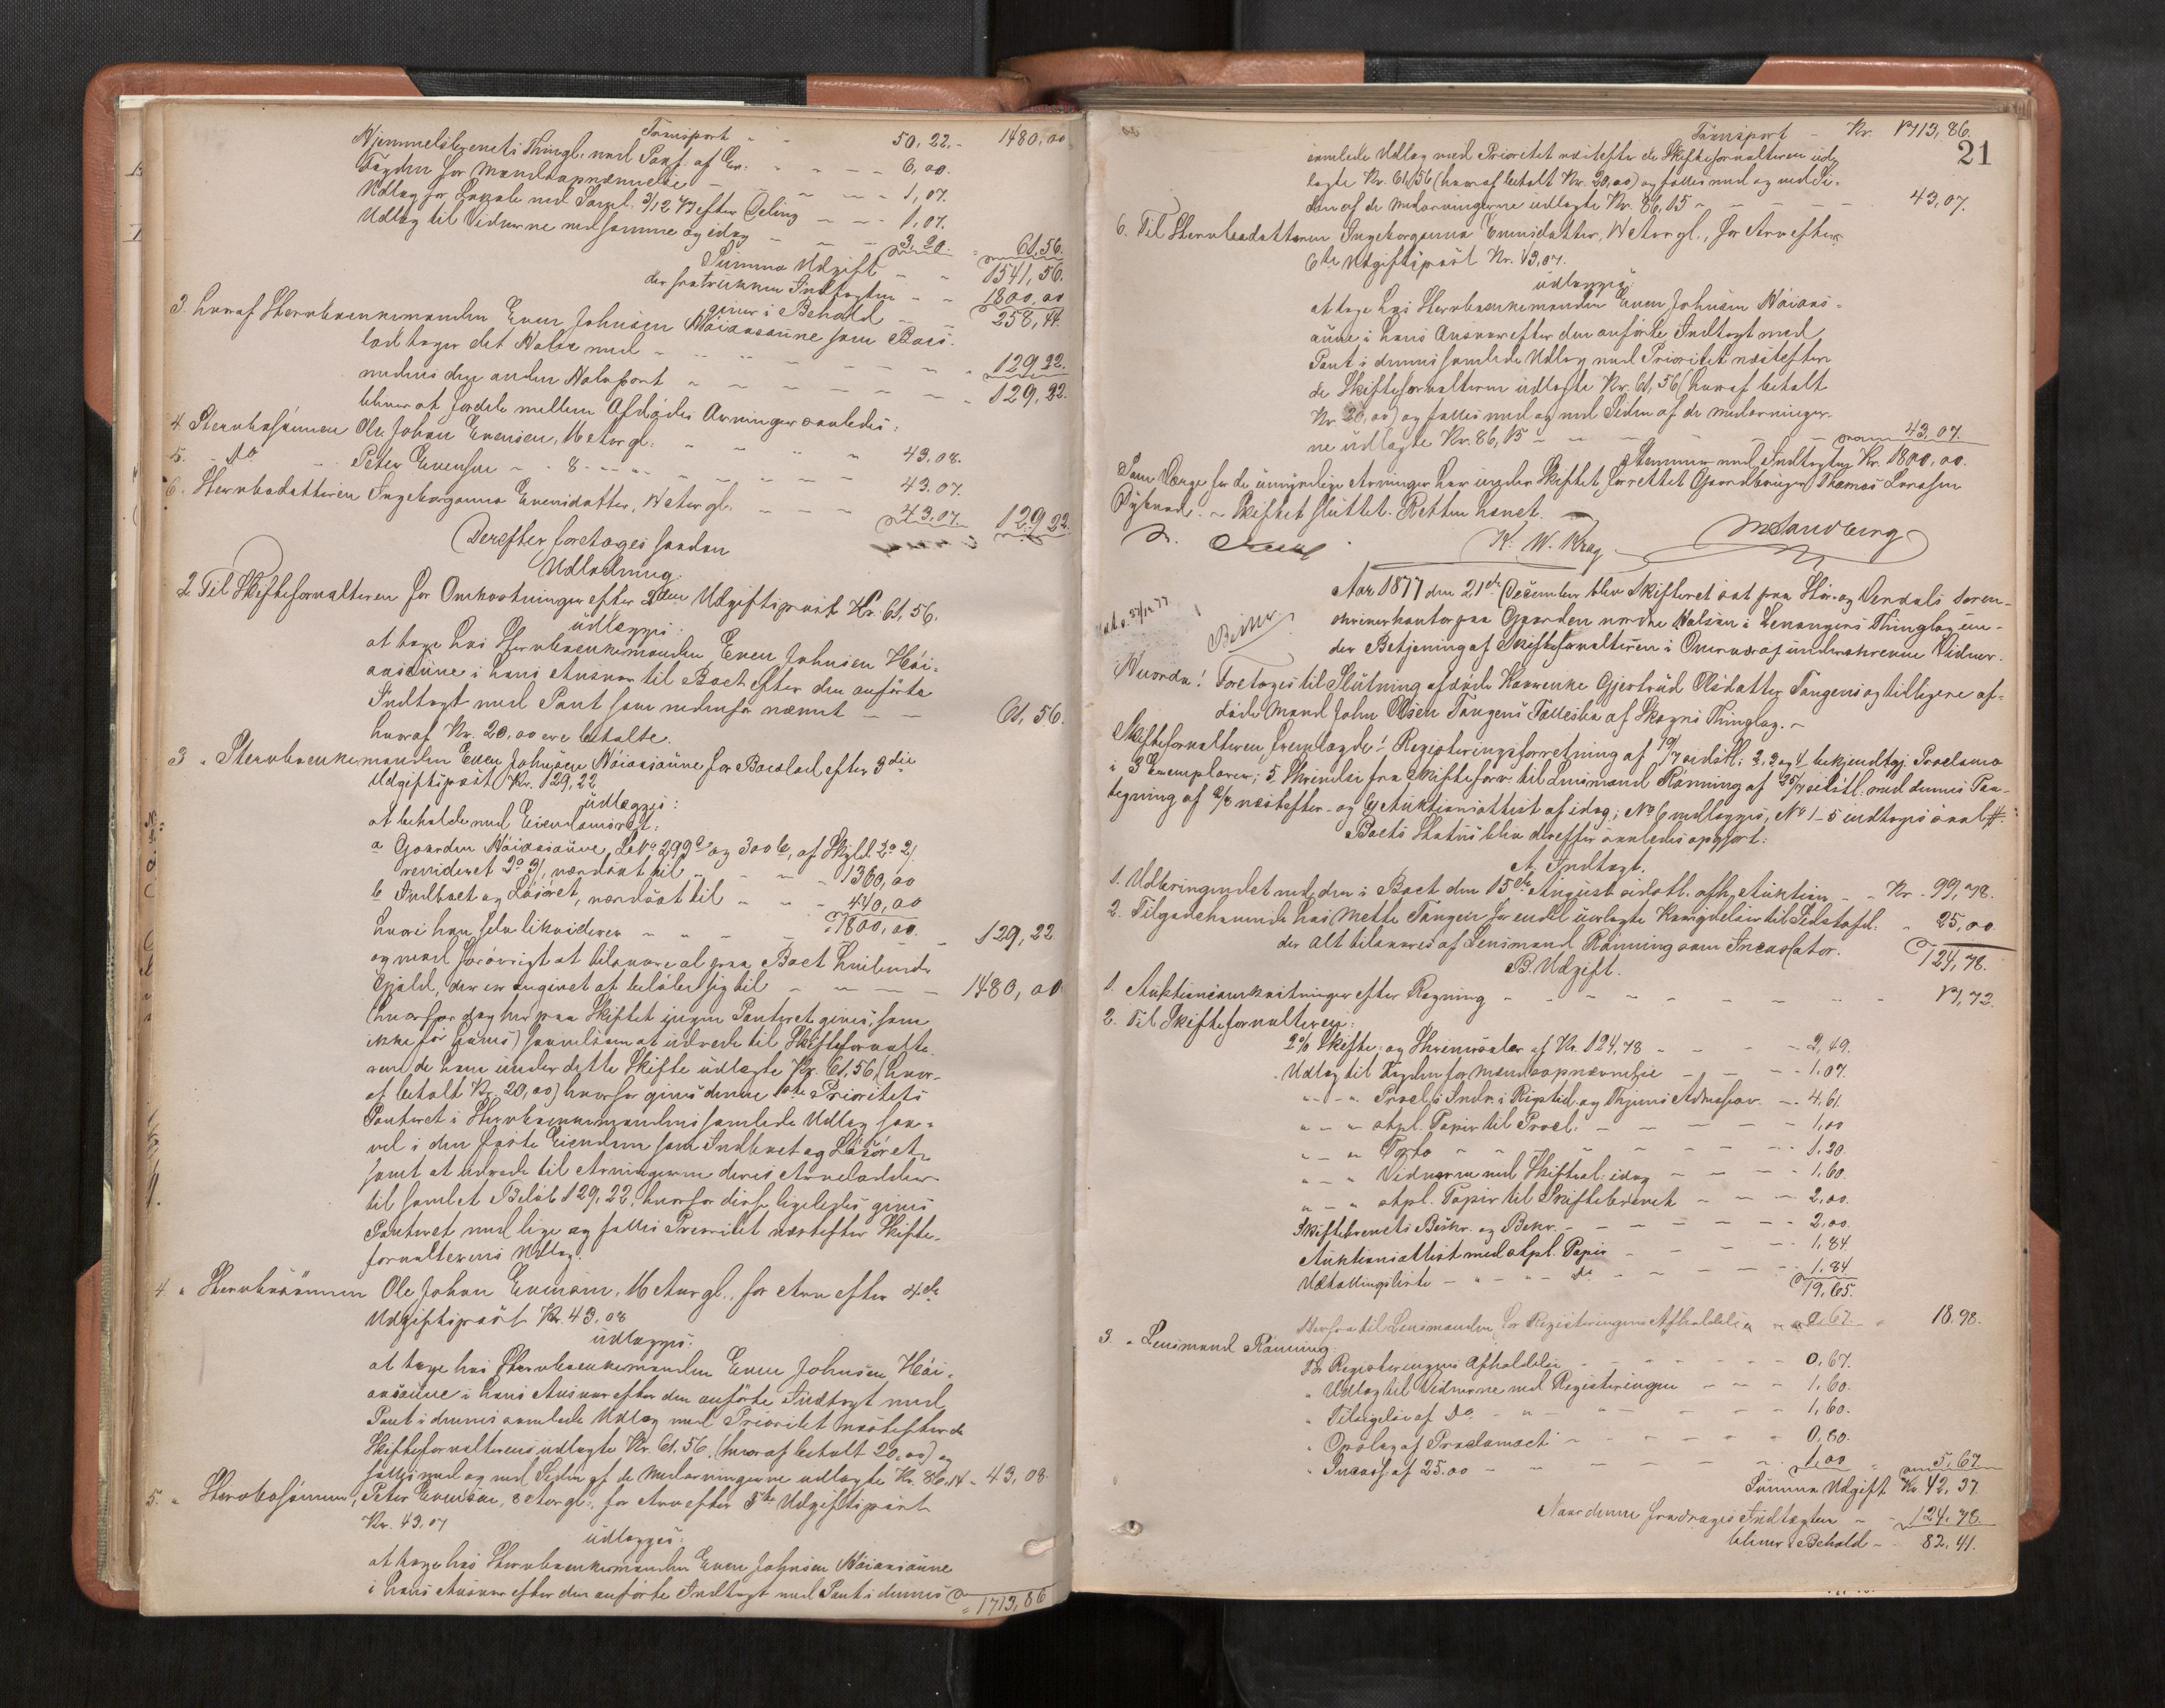 Transport " - 50,22.- 1480,00
Hjemmelsbrevets Thingl. med Pant. af Em: " " - - 6,00.
Fogden for Mandsopnævnelse - - - - - 1,07.
Udlæg for Lokale ved Sampl. 3/12 77 efter Deling - - - 1,07.
Udlæg til Vidnerne ved samme og idag - - - 3,20. " 61,56.
Summa Udgift - " 1541,56.
der fratrukken Indtægten - " 1800,00
giver i Behold - 258,44.
3. hvoraf Stervboenkemanden Even Johnsen Höiaasaune som Boes-
lod tager det Halve med - - - - - " 129,22.
medens den anden Halvpart - - - - - " 129,22.
bliver at fordele mellem Afdødes Arvinger saaledes:
4. Stervbosönnen Ole Johan Evensen, 16 Aar gl. - " " " 43,08.
5. - Do - Peter Evensen - " 8 - - - - - - 43,07.
6. Stervbodatteren Ingeborganna Evensdatter, 14 Aar gl. - - - 43,07. 129,22.
Derefter foretoges saadan
Udlodning:
2 Til Skifteforvalteren for Omkostninger efter 2den Udgiftspost Kr. 61,56.
udlægges:
at tage hos Stervboenkemanden Even Johnsen Höi-
aasaune i hans Ansvar til Boet efter den anførte
Indtægt med Pant som nedenfor nævnt - - 61,56.
hvoraf Kr. 20,00 ere betalte.
3 " Stervboenkemanden Even Johnsen Höiaasaune for Boeslod efter 3die
Udgiftspost Kr. 129,22
udlægges:
at beholde med Eiendomsret:
a Gaarden Höiaasaune, LNo 299 a og 300 b, af Skyld 2 o 2 /
revideret 3 o 3 /, værdsat til - - - - 1360,00
b Indboet og Løsøret, værdsat til - - - 440,00
1800,00.
hvori han selv likviderer - " " - - - 129,22
og med forøvrigt at tilsvare al paa Boet hvilende
Gjæld, der er angivet at beløbe sig til - - - - 1480,00
(hvorfor dog her paa Skiftet ingen Panteret gives, som
ikke før havdes) saavelsom at udrede til Skifteforvalte-
ren de ham under dette Skifte udlagte Kr. 61.56 (hvor-
af betalt Kr. 20,00) hvorfor gives denne 1ste Prioritets
Panteret i Stervboenkemandens samlede Udlæg saa-
vel i den faste Eiendom som Indboet og Løsøret,
samt at udrede til Arvingerne deres Arvelodder
til samlet Beløb 129,22, hvorfor disse ligeledes gives
Panteret med lige og fælles Prioritet næstefter Skifte-
forvalterens Udlæg.
4. " Stervbosönnen Ole Johan Evensen, 16 Aar gl., for Arv efter 4de
Udgiftspost Kr. 43,08
udlægges:
at tage hos Stervboenkemanden Even Johnsen Höi-
aasaune i hans Ansvar efter den anførte Indtægt med
Pant i dennes samlede Udlæg med Prioritet næstefter de
Skifteforvalterens udlagte Kr. 61,56. (hvoraf betalt 20,00) og
fælles med og ved Siden af de Medarvingerne udlagte Kr. 86,14 - 43,08.
5. " Stervbosönnen, Peter Evensen, 8 Aar gl., for Arv efter 5te Udgiftspost
Kr. 43,07
udlægges:
at tage hos Stervboenkemanden Even Johnsen Höiaasaune
i hans Ansvar efter den anførte Indtægt med Pant i dennes
" 1713,86
Transport - Kr. 1713,86.
21
samlede Udlæg med Prioritet næstefter de Skifteforvalteren ud-
lagte Kr. 61,56 (hvoraf betalt Kr. 20,00) og fælles med og ved Si-
den af de Medarvingerne udlagte Kr. 86,15 - - - - - 43,07.
6. Til Stervbodatteren Ingeborganna Evensdatter, 14 Aar gl., for Arv efter
6te Udgiftspost Kr. 43,07.
udlægges:
at tage hos Stervboenkemanden Even Johnsen Höiaas-
aune i hans Ansvar efter den anførte Indtægt med
Pant i dennes samlede Udlæg med Prioritet næstefter
de Skifteforvalteren udlagte Kr. 61,56 (hvoraf betalt
Kr. 20,00) og fælles med og ved Siden af de Medarvinger-
ne udlagte Kr. 86,15 - - - - - - 43,07.
Stemmer med Indtægten Kr. 1800,00.
Som Værge for de umyndige Arvinger har under Skiftet forrettet Gaardbruger Thomas Larsen
Skiftet sluttet. Retten hævet.
K. W. Krag
M Sandberg
Aar 1877 den 21de December blev Skifteret sat paa Stör- og Verdals Soren-
skriverkontor paa Gaarden nordre Halsan i Levangers Thinglag un-
der Betjening af Skifteforvalteren i Overvær af underskrevne Vidner.
Hvorda! Foretoges til Slutning afdøde Kaarenke Gjertrud Olsdatter Tangens og tidligere af-
døde Mand John Olsen Tangens Fællesbo af Skogns Thinglag. -
Skifteforvalteren fremlagde 1 Registeringsforretning af 19/7 sidstl. 2, 3 og 4 bekjendtgj. Proclama
i 3 Exemplarer; 5. Skrivelse fra Skifteforv. til Lensmand Rönning af 25/7 sidstl. med dennes Paa-
tegning af 2/8 næstefter og 6) Auktionsattest af idag; No 6 vedlægges, No 1-5 indtages saal #:
Boets Status blev derefter saaledes opgjort:
A. Indtægt.
1. Udbringendet ved den i Boet den 15de August sidstl. afh. Auktion - - Kr. 99,78.
2. Tilgodehavende hos Mette Tangen for endel Sidstafd. " 25,00.
der alt tilsvares af Lensmand Rönning som Incassator. 124,78.
B. Udgift.
1. Auktionsomkostninger efter Regning - - - - - - - - - 17,72.
2. Til Skifteforvalteren:
2% Skifte- og Skriversalær af Kr. 124,78 - - - - 2,49.
Udlæg til Fogden for Mandsopnævnelse - - - - 1,07.
" - " Procl.s Indr. i Rigstid. og Thjems Adresseav. - 4,61.
" - " stpl. Papir til Procl. - - - - - 1,00
" - " Porto - - - - - - 1,20.
" - " Vidnerne ved Skiftesl. idag - - - - 1,60.
" - " stpl. Papir til Skiftebrevet - - - 2,00.
Skiftebrevets Beskr. og Bekr. - - - - - - 2,00.
Auktionsattest med stpl. Papir - - - - 1,84.
Udtællingsliste - " - " - Do - - - - 1,84
19,65.
Herfra til Lensmanden for Registeringens Afholdelse " 0,67. " 18,98.
3. " Lensmand Rönning:
for Registeringens Afholdelse - - - - - - 0,67.
" Udlæg til Vidnerne ved Registeringen - - - - 1,60.
" Tilsigelse af Do - " - " - - - - 1,60.
" Opslag af Proclamaet - - - - - - 0,80.
" Incass. af 25.00 - - - - - - 1,00 " 5,67.
Summa Udgift Kr. 42,37.
Naar denne fradrages Indtægten - - 124,78.
bliver i Behold - - 82,41.